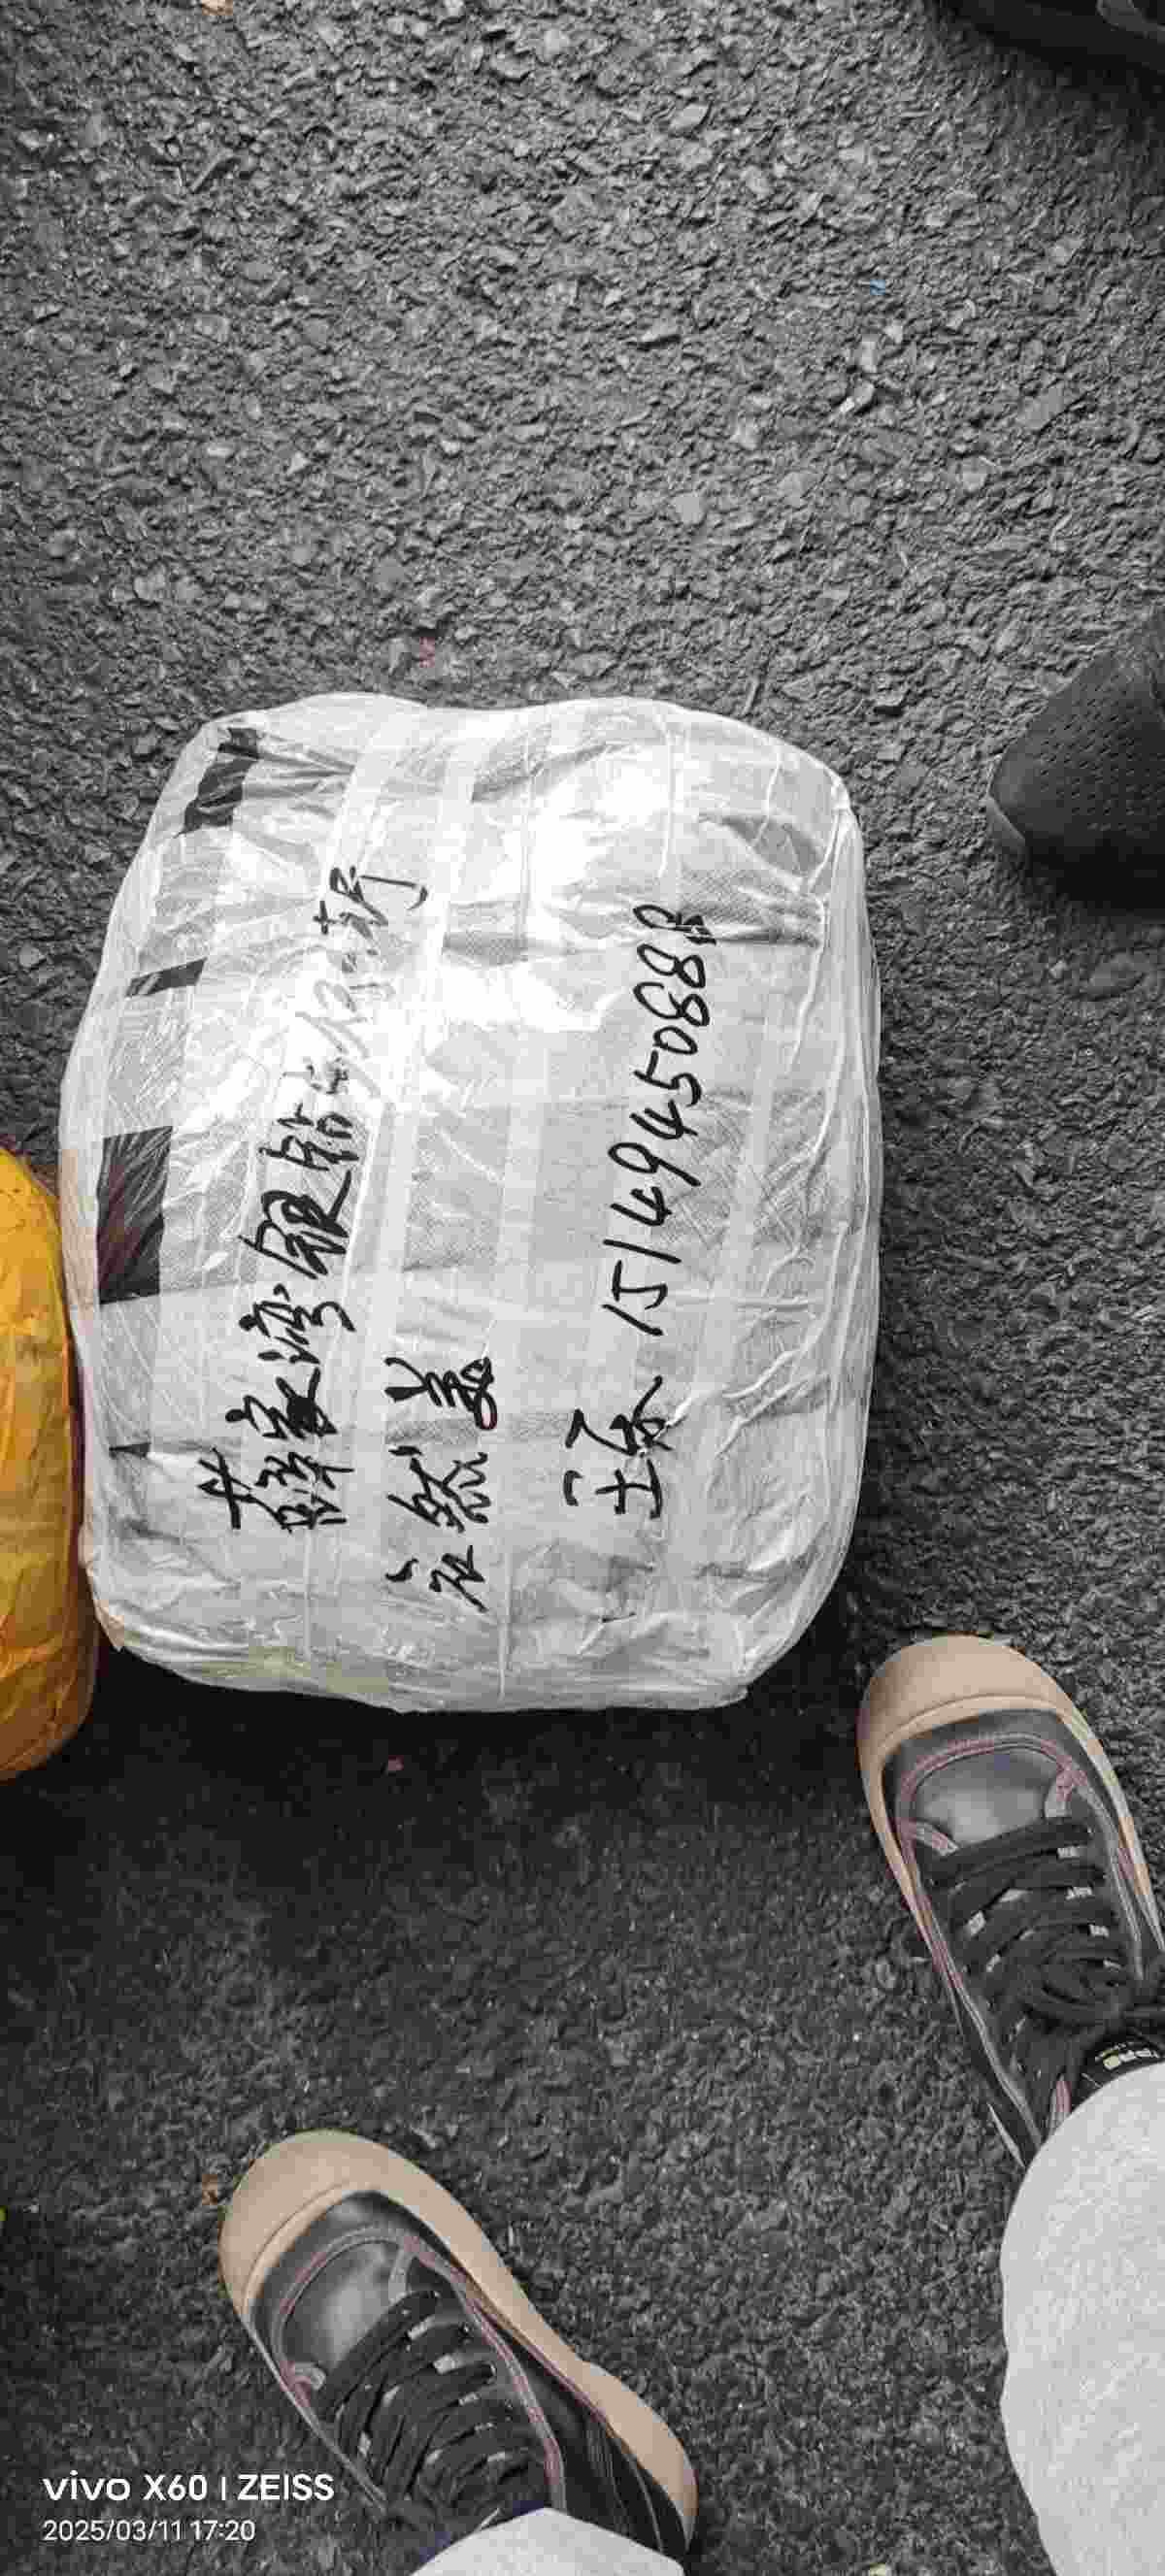 薛家湾银
自然美
王乐 15149450888
vivo X60 | ZEISS
2025/03/11 17:20